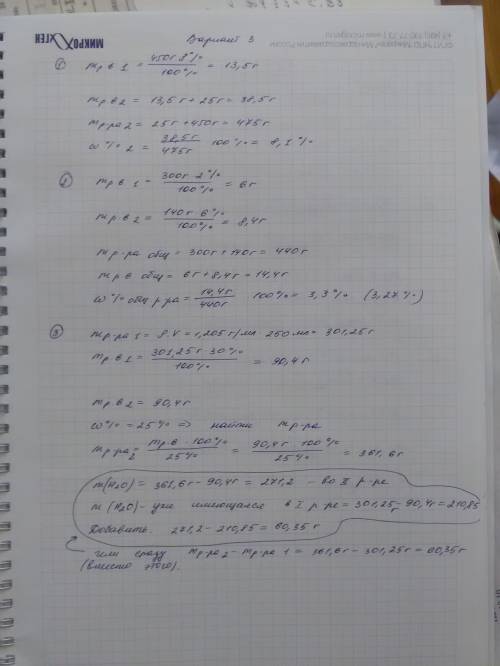 МИКРО ТЕН
Вариант 3
① mр.в 1 = 450г·3% / 100% = 13,5г
mр.в2 = 13,5г + 25г = 38,5г
mр-ра2 = 25г + 450г = 475г
ω% 2 = 38,5г / 475г 100% = 8,1%
② mр.в 1 = 300г·2% / 100% = 6г
mр.в2 = 140г·6% / 100% = 8,4г
mр-ра общ = 300г + 140г = 440г
mр.в общ = 6г + 8,4г = 14,4г
ω% общ р-ра = 14,4г / 440г 100% = 3,3% (3,27%)
③ mр-ра 1 = ρV = 1,205г/мл · 250мл = 301,25г
mр.в1 = 301,25г·30% / 100% = 90,4г
mр.в2 = 90,4г
ω% = 25% => найти mр-ра
mр-ра2 = mр.в · 100% / 25% = 90,4г · 100% / 25% = 361,6г
m(H2O) = 361,6г - 90,4г = 271,2 - во II р-ре
m(H2O) - уже имеющаяся в I р-ре = 301,25г - 90,4г = 210,85
Добавить: 271,2 - 210,85 = 60,35г
или сразу mр-ра2 - mр-ра 1 = 361,6г - 301,25г = 60,35г
(вместо этого).